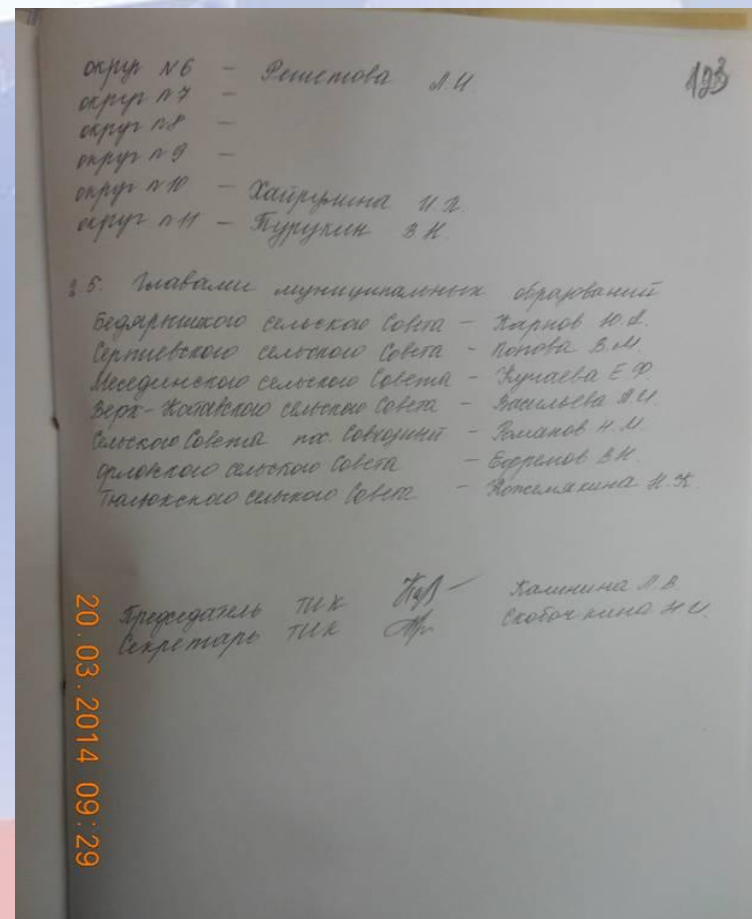 123
округ №6 – Решетова Л.И
округ №7 –
округ №8 –
округ №9 –
округ №10 – Хайруллина И.Х.
округ №11 – Турукин В.Н.
2.5. Главами муниципальных образований
Бедярышского сельского Совета – Карпов Ю.А.
Серпиевского сельского Совета – Попова В.М.
Месединского сельского Совета – Кунаева Е.Ф.
Верх-Катавского сельского Совета – Васильева А.И.
Сельского Совета пос. Совхозный – Романов Н.М.
Орловского сельского Совета – Ефремов В.Н.
Тюлюкского сельского Совета – Кожемякина Н.К.
Председатель ТИК Калинина Л.В.
Секретарь ТИК Скобочкина Н.И.
20.03.2014 09:29